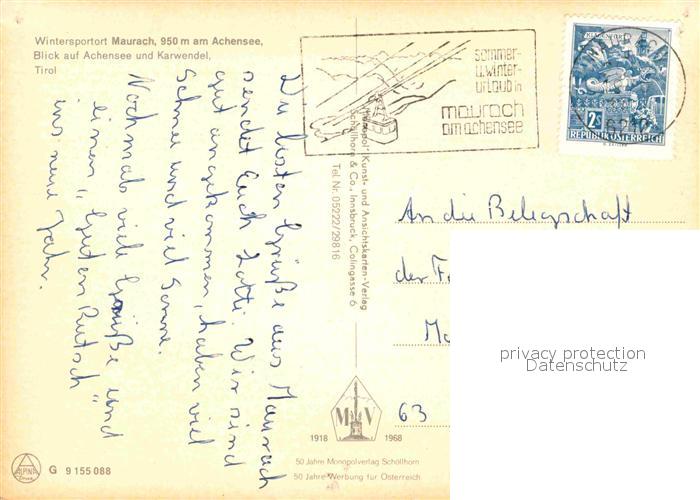 Wintersportort Maurach, 950 m am Achensee,
Blick auf Achensee und Karwendel,
Tirol
sommer-
u.winter-
urlaub in
maurach
am achensee
KLAGENFURT
2S
REPUBLIK ÖSTERREICH
Die besten Grüße aus Maurach
sendet Euch Lotti. Wir sind
gut angekommen, haben viel
Schnee und viel Sonne.
Nochmals viele Grüße und
einen "Guten Rutsch"
ins neue Jahr.
"Monopol" Kunst- und Ansichtskarten-Verlag
Schöllhorn & Co., Innsbruck, Colingasse 6
Tel Nr. 05222/29816
An die Belegschaft
der
63
privacy protection
Datenschutz
M V
1918 1968
50 Jahre Monopolverlag Schöllhorn
50 Jahre Werbung für Österreich
ALPINA
DRUCK
G 9 155 088